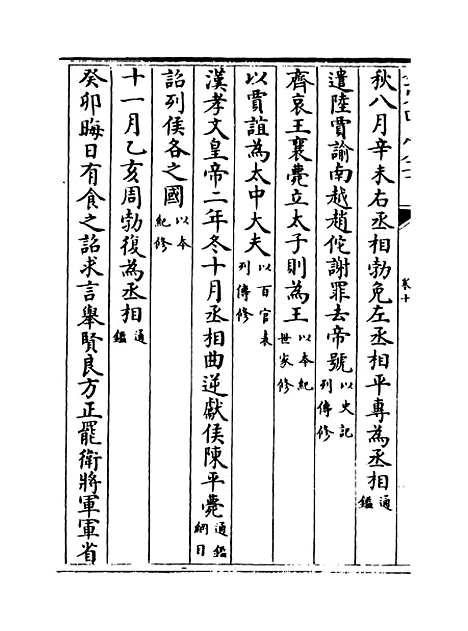 卷十
秋八月辛未右丞相勃免左丞相平專為丞相通鑑
遣陸賈諭南越趙佗謝罪去帝號以史記列傳修
齊哀王襄薨立太子則為王以本紀世家修
以賈誼為太中大夫以百官表列傳修
漢孝文皇帝二年冬十月丞相曲逆獻侯陳平薨通鑑綱目
詔列侯各之國以本紀修
十一月乙亥周勃復為丞相通鑑
癸卯晦日有食之詔求言舉賢良方正罷衛將軍軍省